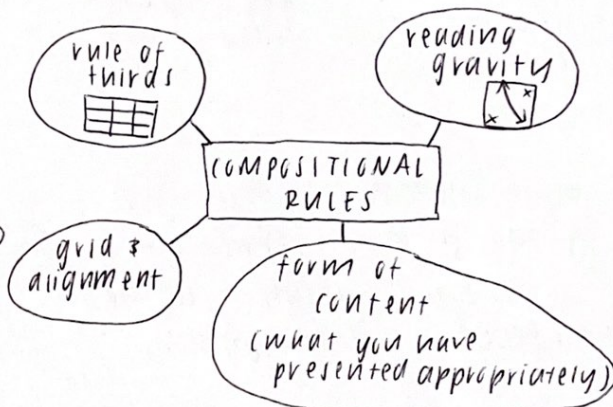 rule of
thirds
reading
gravity
COMPOSITIONAL
RULES
grid &
alignment
form of
content
(what you have
presented appropriately)